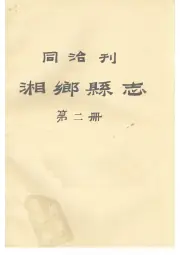 同治刊
湘鄉縣志
第二册